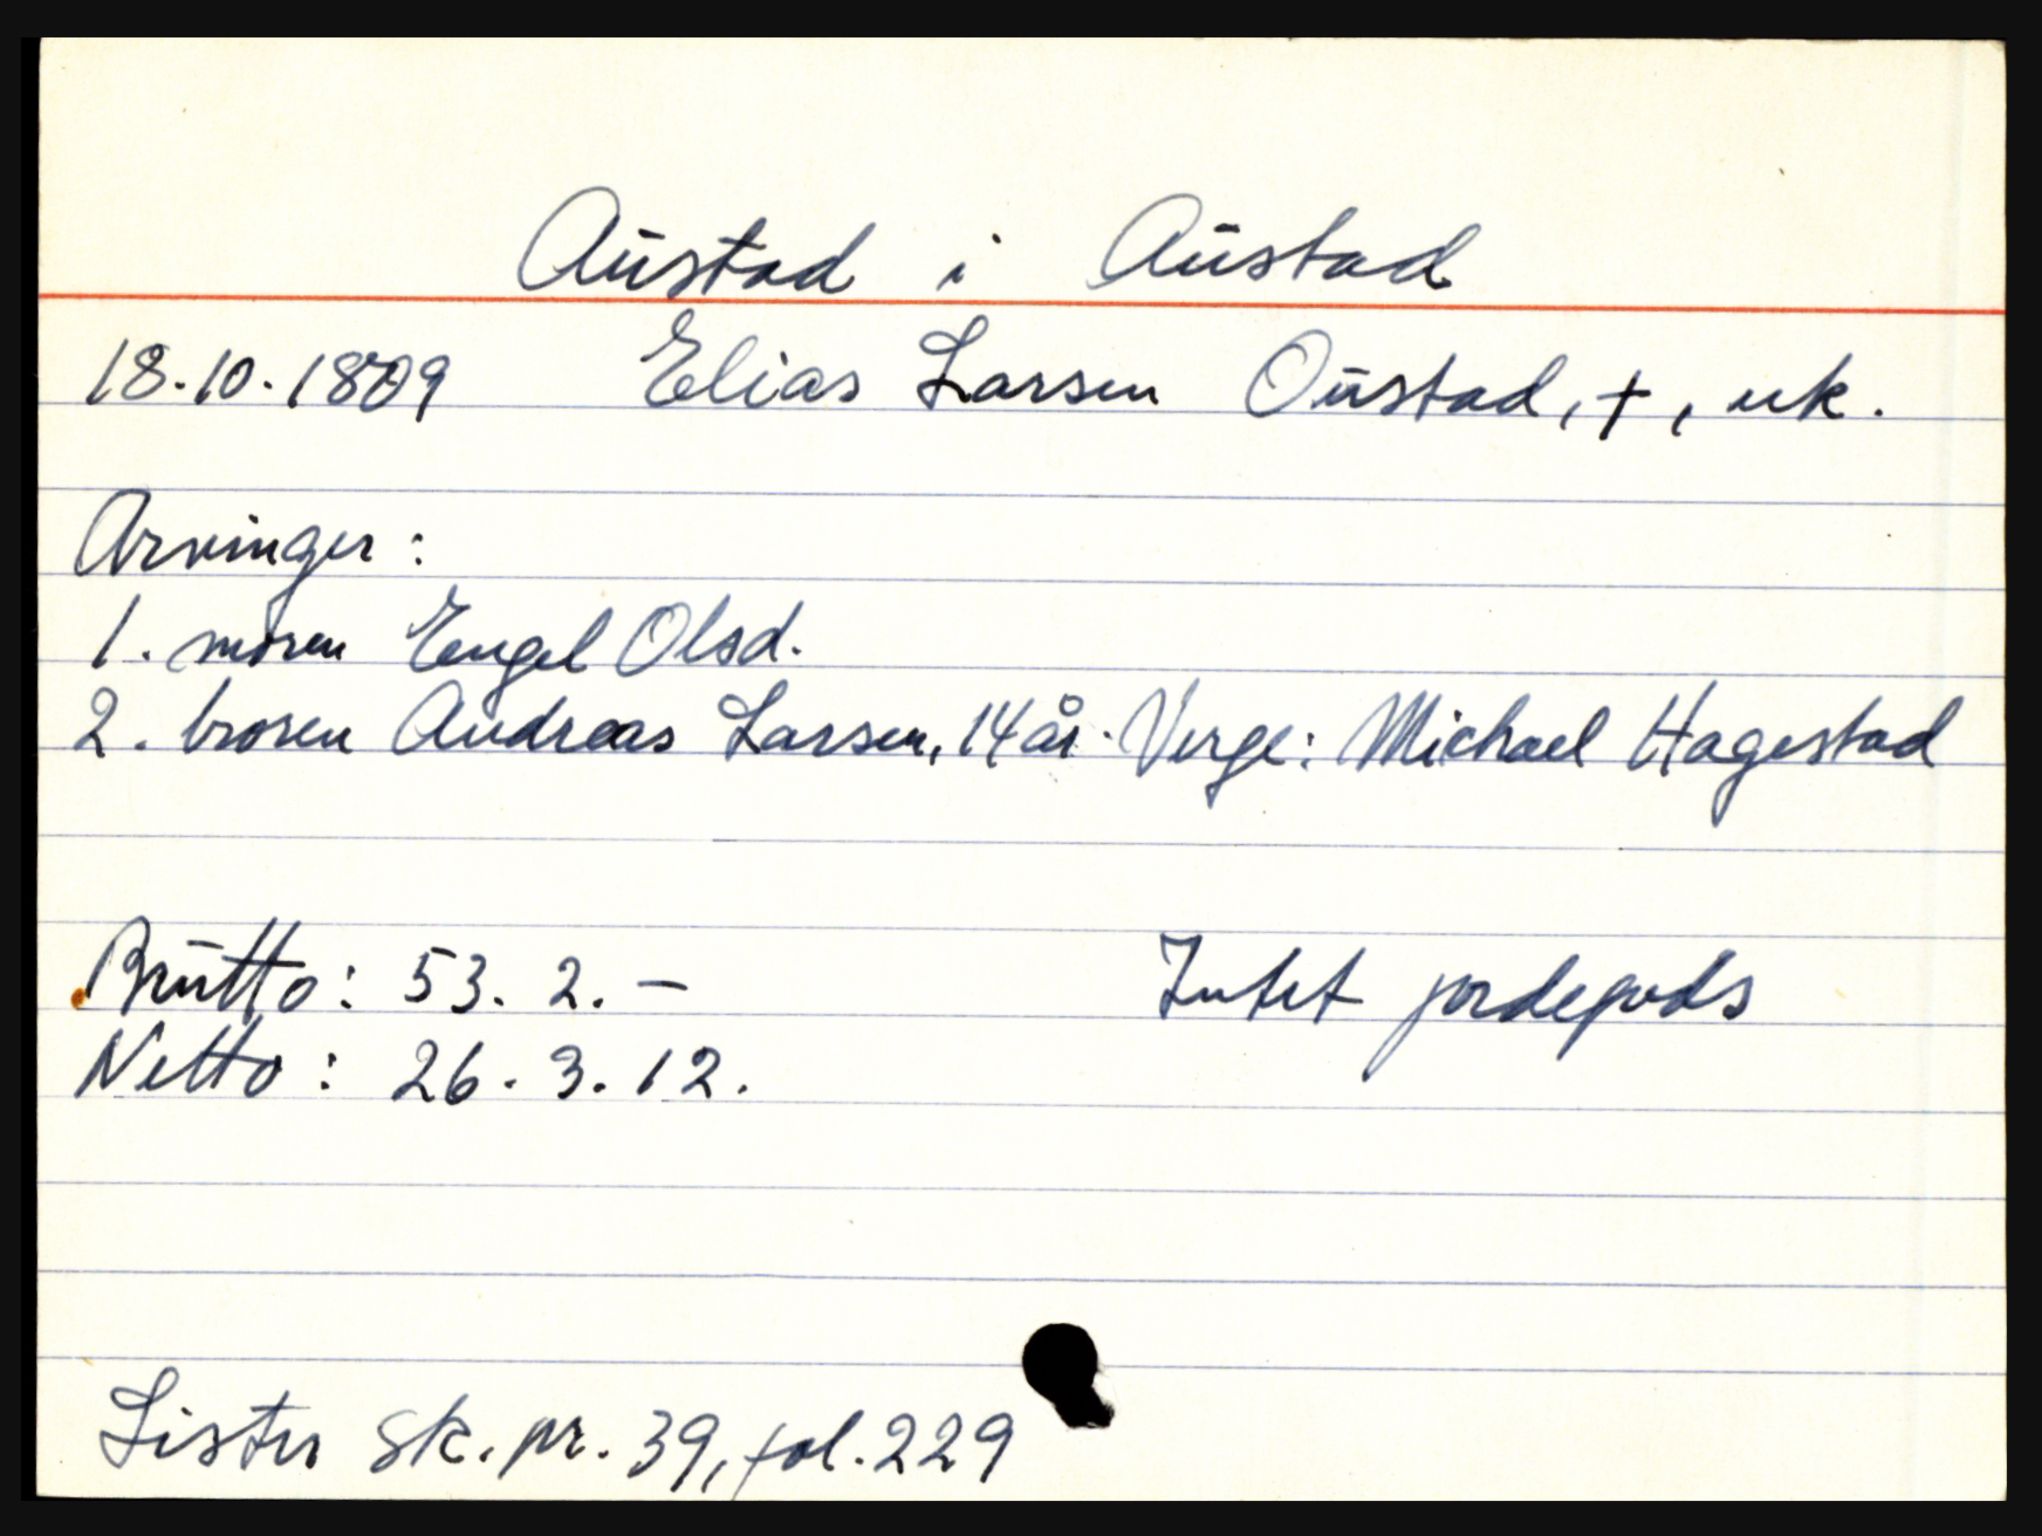 Austad i Austad
18.10.1809 Elias Larsen Oustad, +, uk.
Arvinger:
1. moren Engel Olsd.
2. broren Andreas Larsen, 14 år. Verge: Michael Hagestad
Brutto: 53. 2. - Intet jordegods
Netto: 26. 3. 12.
Lister sk. pr. 39, fol. 229